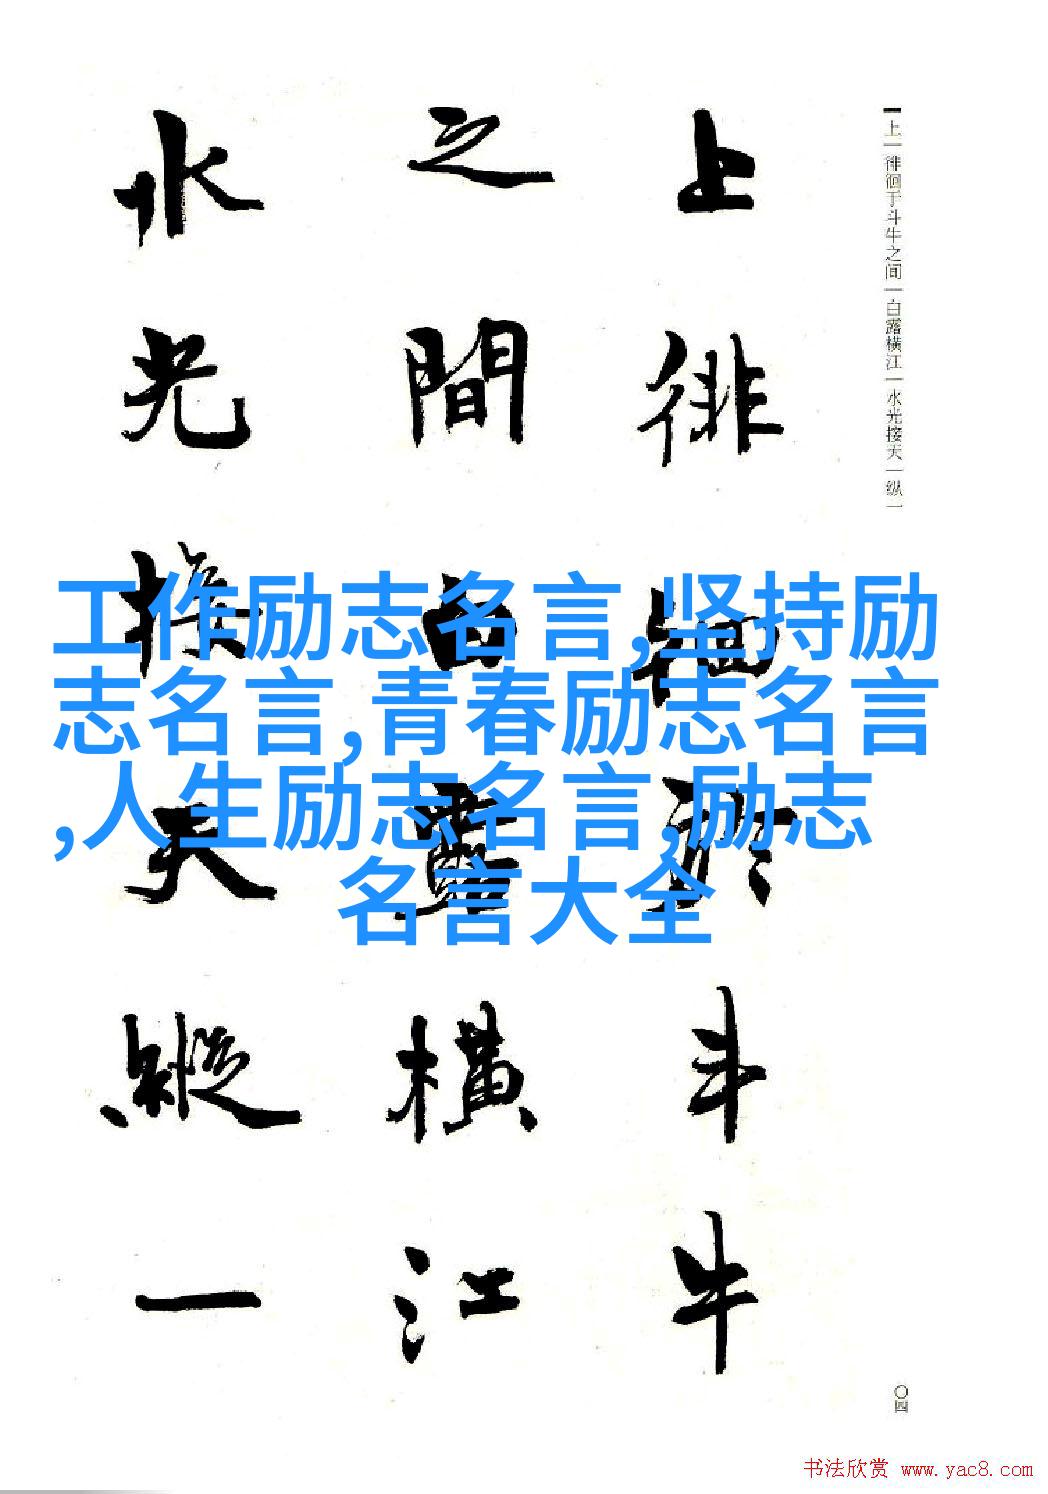 上一徘徊于斗牛之间一白露横江一水光接天一纵一
上徘徊於斗牛
之間白露橫江
水光接天縱一
工作励志名言,坚持励
志名言,青春励志名言
,人生励志名言,励志
名言大全
〇四
书法欣赏 www.yac8.com